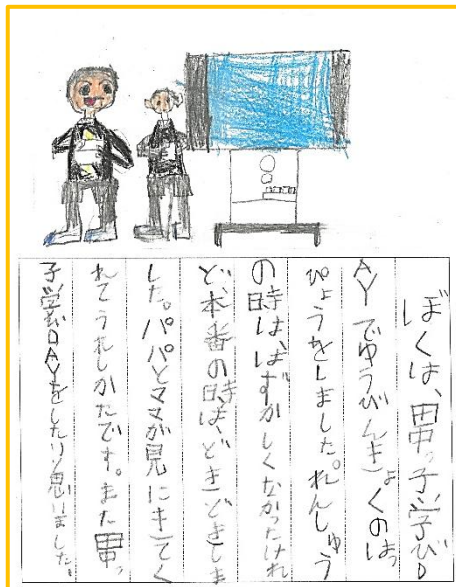 ぼくは、田中っ子学びD
AYでゆうびんきょくのはっ
ぴょうをしました。れんしゅう
の時は、はずかしくなかったけれ
ど、本番の時は、どきどきしま
した。パパとママが見にきてく
れてうれしかたです。また田中っ
子学びDAYをしたいと思いました。